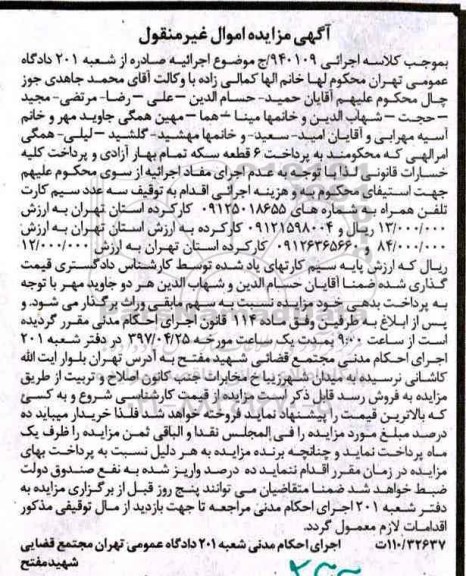 آگهی مزایده اموال غیر منقول
بموجب کلاسه اجرائی ۹۴۰۱۰۹/ج موضوع اجرائیه صادره از شعبه ۲۰۱ دادگاه
عمومی تهران محکوم لها خانم الها کمالی زاده با وکالت آقای محمد جاهدی جوز
چال محکوم علیهم آقایان حمید- حسام الدین – علی – رضا- مرتضی- مجید
– حجت – شهاب الدین و خانمها مینا –هما – مهین همگی جاوید مهر و خانم
آسیه مهرابی و آقایان امید- سعید- و خانمها مهشید- گلشید – لیلی- همگی
امرالهی که محکومند به پرداخت ۶ قطعه سکه تمام بهار آزادی و پرداخت کلیه
خسارات قانونی لذا با توجه به عدم اجرای مفاد اجرائیه از سوی محکوم علیهم
جهت استیفای محکوم به و هزینه اجرائی اقدام به توقیف سه عدد سیم کارت
تلفن همراه به شماره های ۰۹۱۲۵۰۱۸۶۵۵ کارکرده استان تهران به ارزش
۱۳/۰۰۰/۰۰۰ ریال و ۰۹۱۲۱۵۹۸۰۰۴ کارکرده به ارزش استان تهران به ارزش
۸۴/۰۰۰/۰۰۰ و ۰۹۱۲۶۳۶۵۶۶۰ کارکرده استان تهران به ارزش ۱۲/۰۰۰/۰۰۰
ریال که ارزش پایه سیم کارتهای یاد شده توسط کارشناس دادگستری قیمت
گذاری شده ضمنا آقایان حسام الدین و شهاب الدین هر دو جاوید مهر با توجه
به پرداخت بدهی خود مزایده نسبت به سهم مابقی وراث برگذار می شود. و
پس از ابلاغ به طرفین وفق ماده ۱۱۴ قانون اجرای احکام مدنی مقرر گردیده
است از ساعت ۹:۰۰ بمدت یک ساعت مورخه ۳۹۷/۰۴/۲۵ در دفتر شعبه ۲۰۱
اجرای احکام مدنی مجتمع قضائی شهید مفتح به آدرس تهران بلوار آیت الله
کاشانی نرسیده به میدان شهرزیبا خ مخابرات جنب کانون اصلاح و تربیت از طریق
مزایده به فروش رسد قابل ذکر است مزایده از قیمت کارشناسی شروع و به کسی
که بالاترین قیمت را پیشنهاد نماید فروخته خواهد شد فلذا خریدار میباید ده
درصد مبلغ مورد مزایده را فی المجلس نقدا و الباقی ثمن مزایده را ظرف یک
ماه پرداخت نماید و چنانچه برنده مزایده به هر دلیل نسبت به پرداخت بهای
مزایده در زمان مقرر اقدام ننماید ده درصد واریز شده به نفع صندوق دولت
ضبط خواهد شد ضمنا متقاضیان می توانند پنج روز قبل از برگزاری مزایده به
دفتر شعبه ۲۰۱ اجرای احکام مدنی مراجعه تا جهت بازدید از مال توقیفی مذکور
اقدامات لازم معمول گردد.
۱۱۰/۳۲۶۳۷ت اجرای احکام مدنی شعبه ۲۰۱ دادگاه عمومی تهران مجتمع قضایی
شهید مفتح